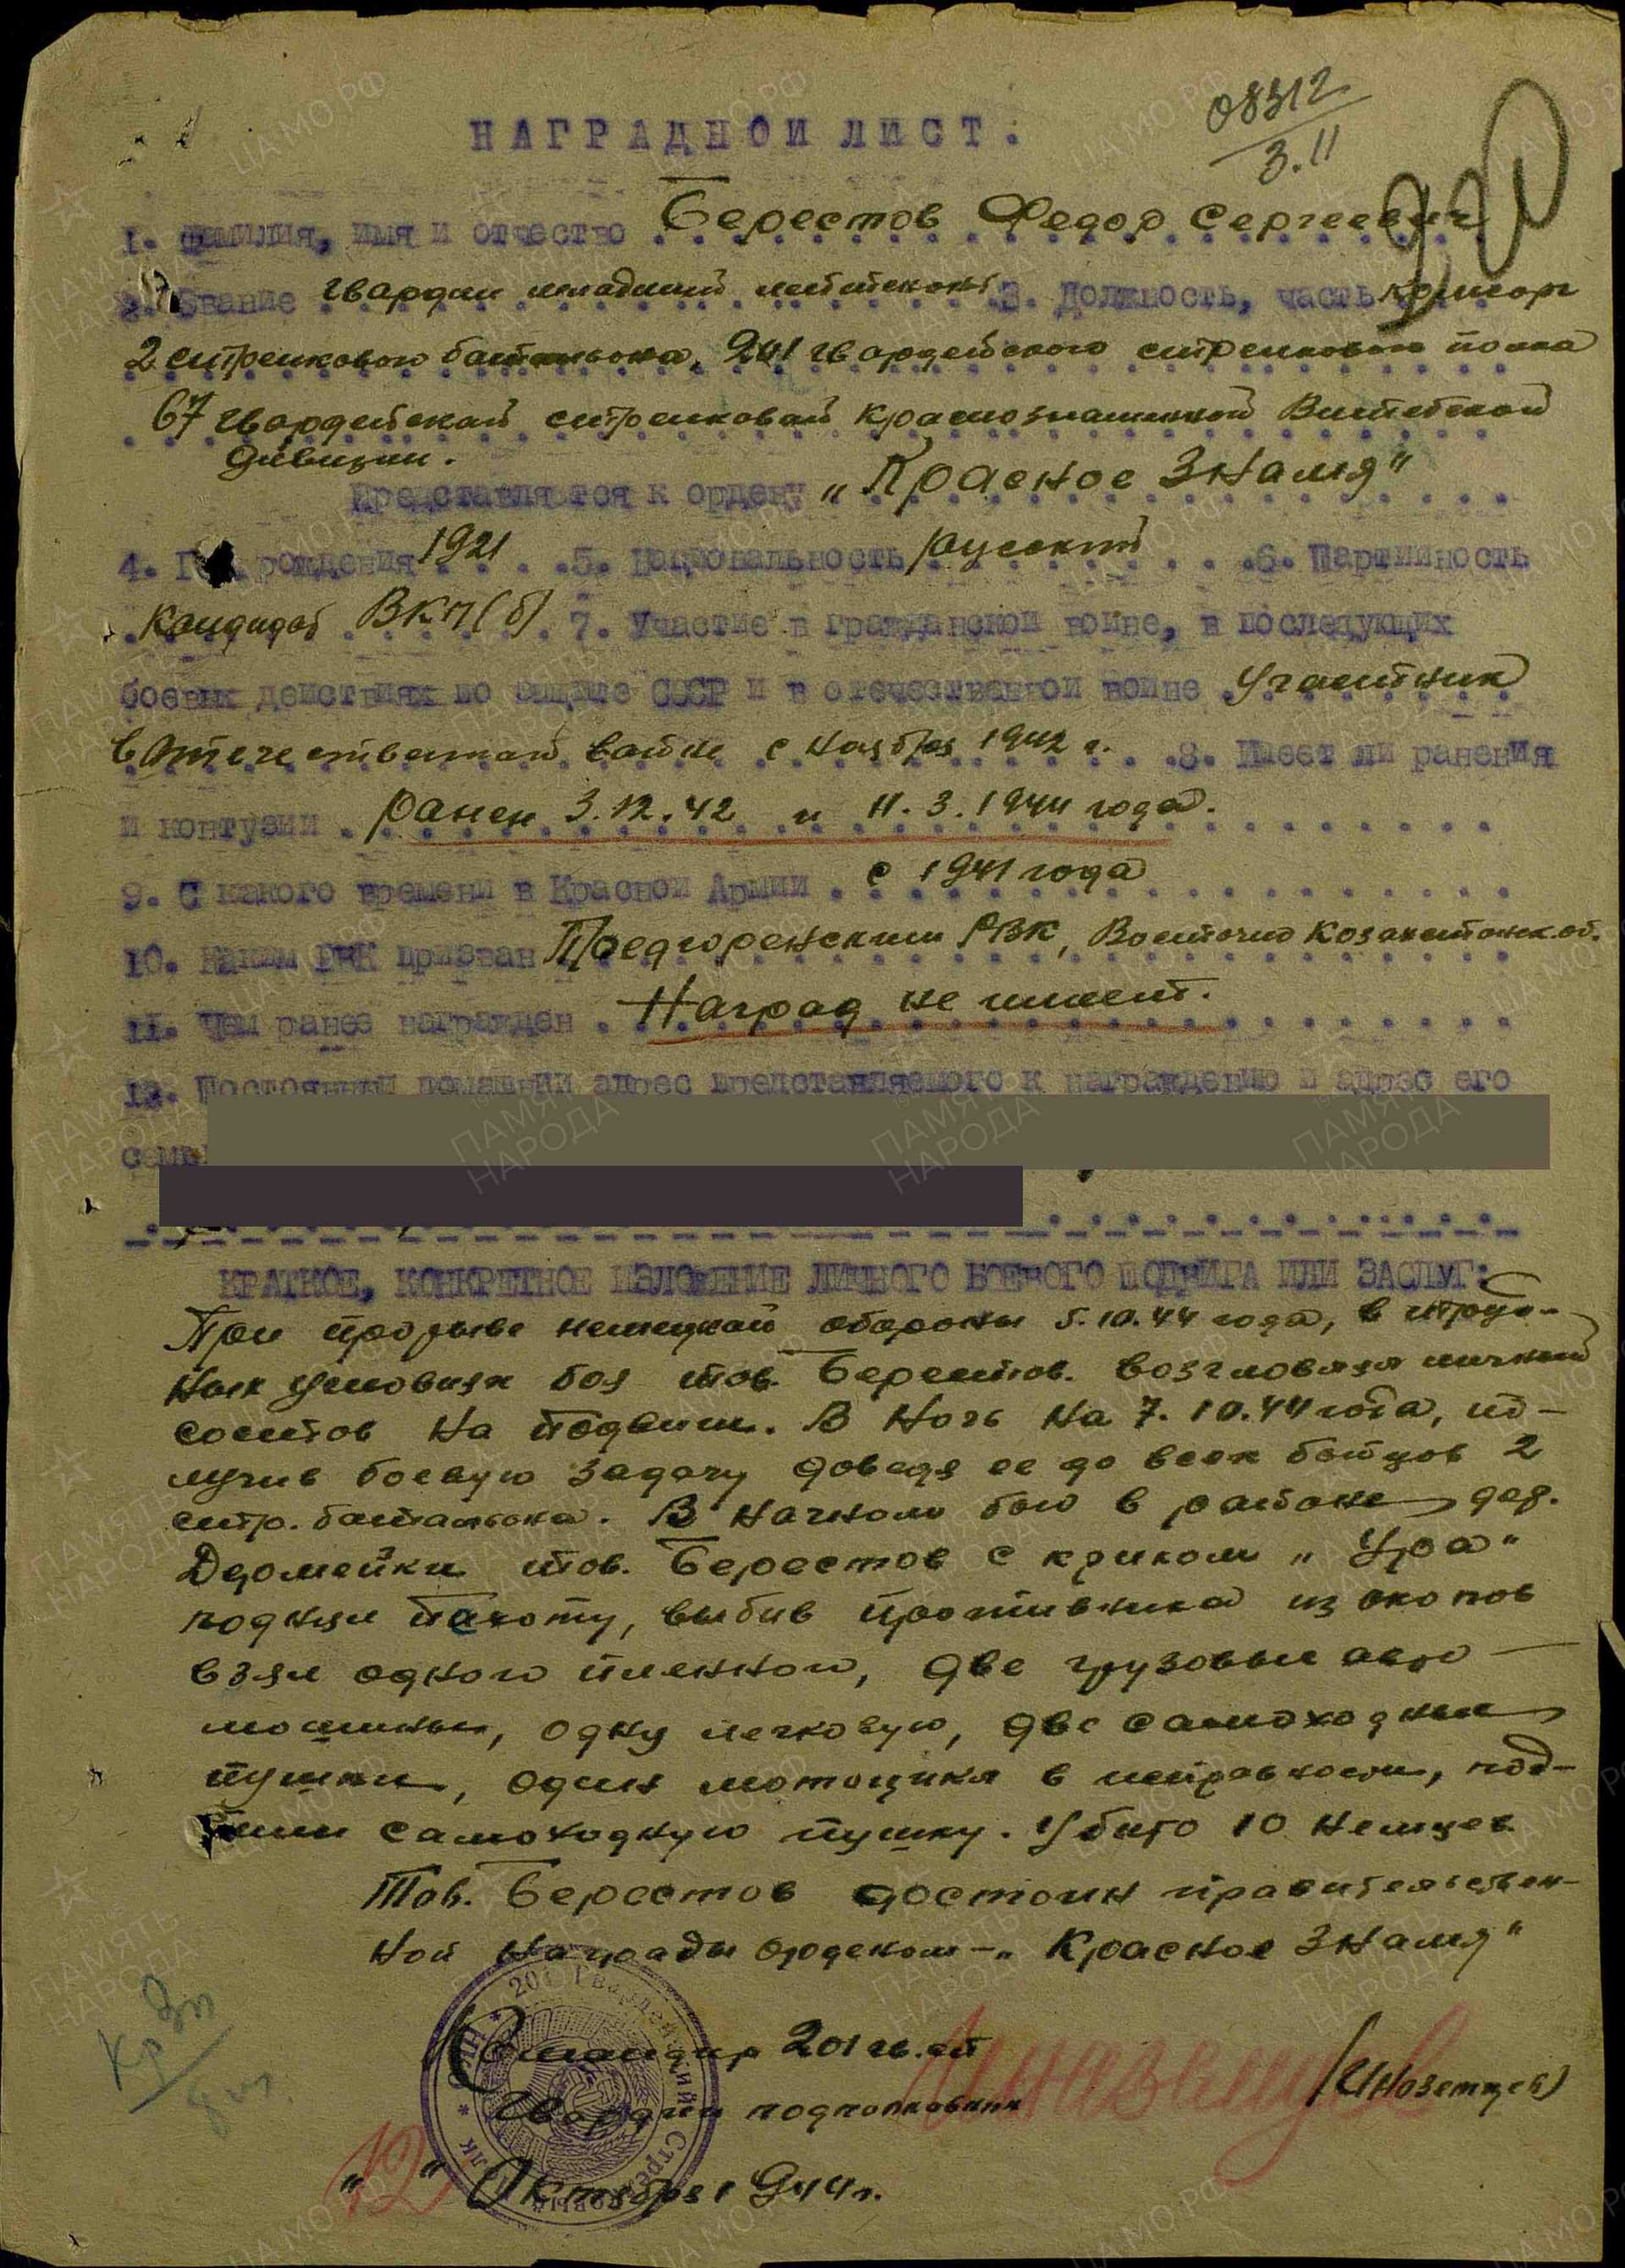 08312
3.11
НАГРАДНОЙ ЛИСТ.
1. Фамилия, имя и отчество Берестов Федор Сергеевич
2. Звание гвардии младший лейтенант 3. Должность, часть комсорг
2 стрелкового батальона, 201 гвардейского стрелкового полка
67 гвардейской стрелковой краснознаменной Витебской
дивизии.
Представляется к ордену „Красное Знамя"
4. Год рождения 1921 5. Национальность русский 6. Партийность
кандидат ВКП(б) 7. Участие в гражданской войне, в последующих
боевых действиях по защите СССР и в отечественной войне участник
в отечественной войне с ноября 1942 г. 8. Имеет ли ранения
и контузии ранен 3.12.42 и 11.3.1944 года.
9. С какого времени в Красной Армии с 1941 года
10. Каким РВК призван Предгоренским РВК, Восточно Казахстанск. об.
11. Чем ранее награжден Наград не имеет.
12. Постоянный домашний адрес представляемого к награждению и адрес его
КРАТКОЕ, КОНКРЕТНОЕ ИЗЛОЖЕНИЕ ЛИЧНОГО БОЕВОГО ПОДВИГА ИЛИ ЗАСЛУГ:
При прорыве немецкой обороны 5.10.44 года, в труд-
ных условиях боя тов. Берестов. возглавлял личный
состав на подвиги. В ночь на 7.10.44 года, по-
лучив боевую задачу доведя ее до всех бойцов 2
стр. батальона. В ночном бою в районе дер.
Дермейки тов. Берестов с криком „Ура"
поднял пехоту, выбив противника из окопов
взял одного пленного, две грузовые авто
машины, одну легковую, две самоходных
пушки, один мотоцикл в исправности, под-
били самоходную пушку. Убито 10 немцев
Тов. Берестов достоин правительствен-
ной награды орденом - „Красное Знамя"
Командир 201 гв. сп
Гвардии подполковник /Иноземцев/
„12" Октября 1944 г.
201 Гвардейский Стрелковый Полк
Кр Зн
ЦАМО РФ
ПАМЯТЬ НАРОДА